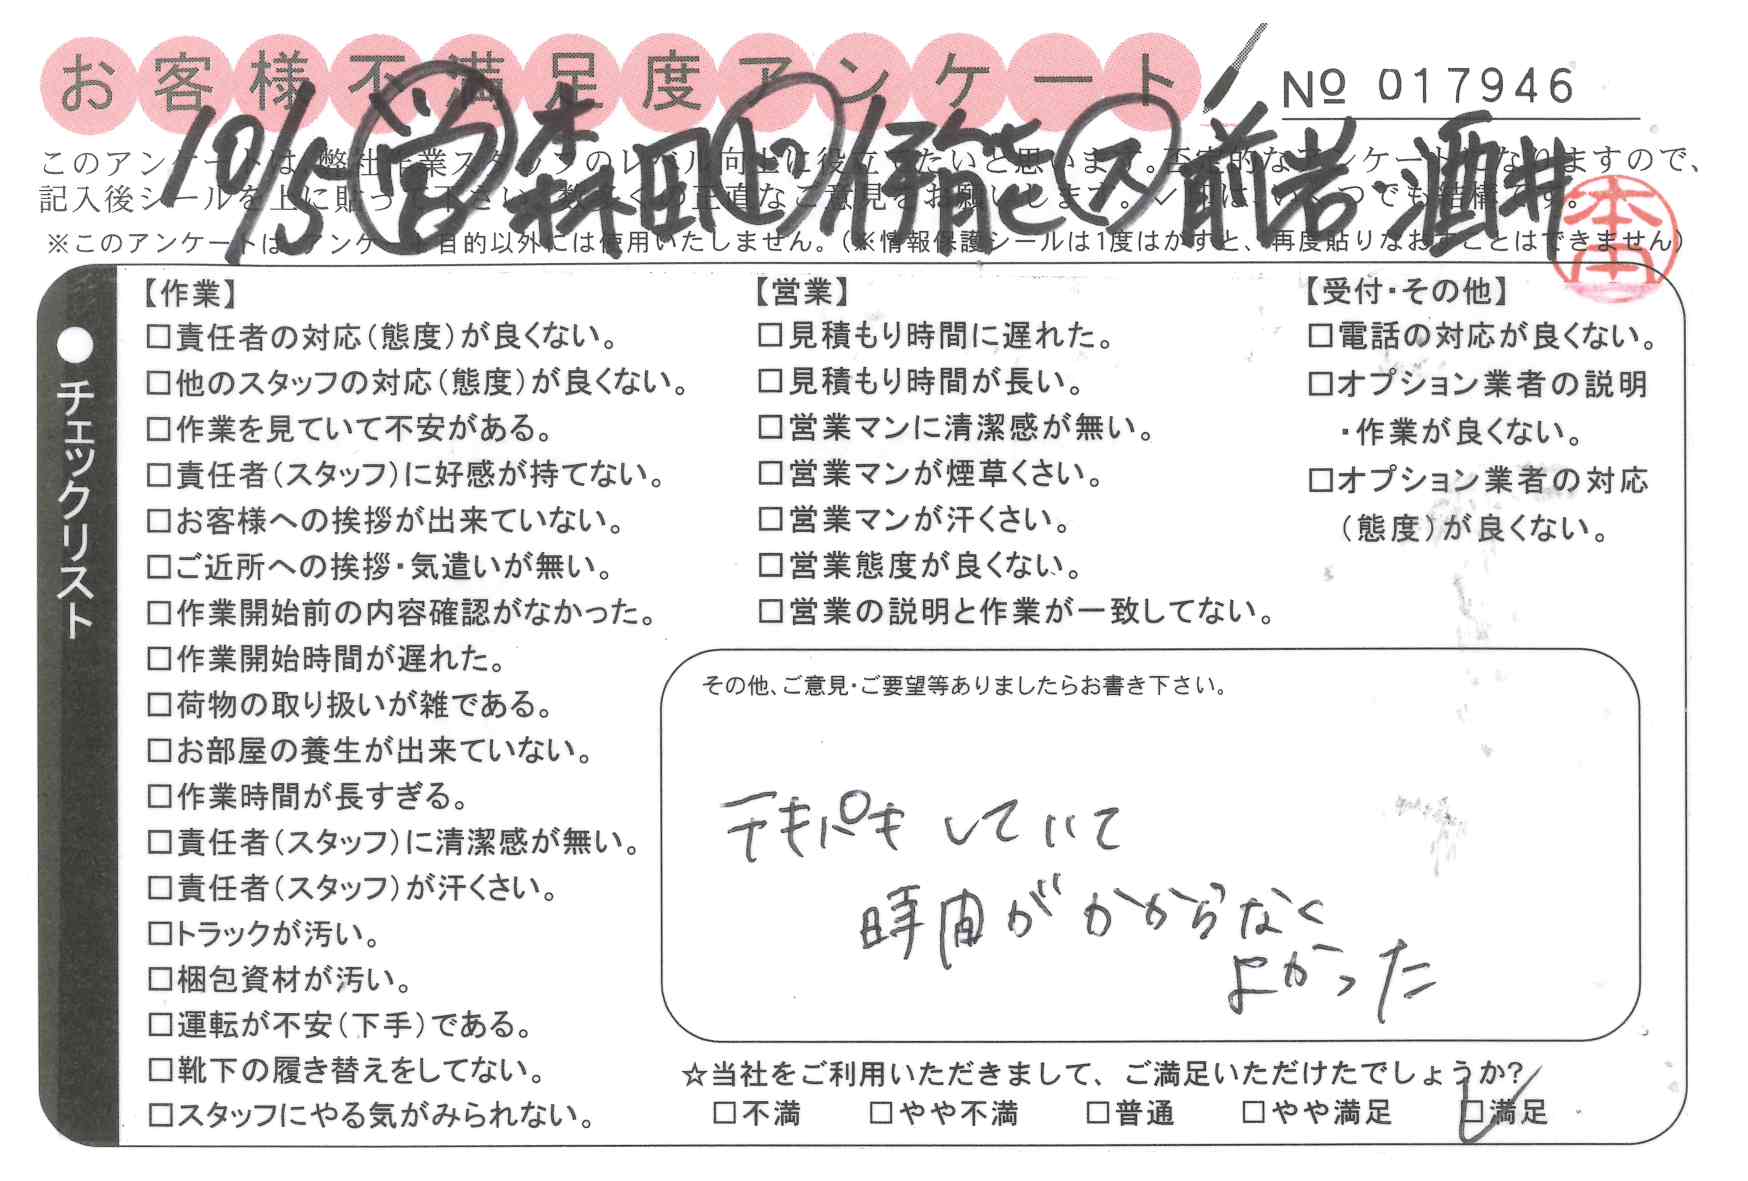 お客様不満足度アンケート
№ 017946
10/5 営 森田 上 伊能 ス 前岩・酒井
このアンケートは、弊社作業スタッフのレベル向上に役立てたいと思います。否定的なアンケートとなりますので、
記入後シールを上に貼って下さい。数多くの正直なご意見をお願いします。✓印は、いくつでも結構です。
※このアンケートは、アンケート目的以外には使用いたしません。(※情報保護シールは1度はがすと、再度貼りなおすことはできません)
●チェックリスト
【作業】
□責任者の対応(態度)が良くない。
□他のスタッフの対応(態度)が良くない。
□作業を見ていて不安がある。
□責任者(スタッフ)に好感が持てない。
□お客様への挨拶が出来ていない。
□ご近所への挨拶・気遣いが無い。
□作業開始前の内容確認がなかった。
□作業開始時間が遅れた。
□荷物の取り扱いが雑である。
□お部屋の養生が出来ていない。
□作業時間が長すぎる。
□責任者(スタッフ)に清潔感が無い。
□責任者(スタッフ)が汗くさい。
□トラックが汚い。
□梱包資材が汚い。
□運転が不安(下手)である。
□靴下の履き替えをしてない。
□スタッフにやる気がみられない。
【営業】
□見積もり時間に遅れた。
□見積もり時間が長い。
□営業マンに清潔感が無い。
□営業マンが煙草くさい。
□営業マンが汗くさい。
□営業態度が良くない。
□営業の説明と作業が一致してない。
【受付・その他】
□電話の対応が良くない。
□オプション業者の説明
・作業が良くない。
□オプション業者の対応
(態度)が良くない。
その他、ご意見・ご要望等ありましたらお書き下さい。
テキパキしていて
時間がかからなく
よかった
☆当社をご利用いただきまして、ご満足いただけたでしょうか?
□不満 □やや不満 □普通 □やや満足 ☑満足